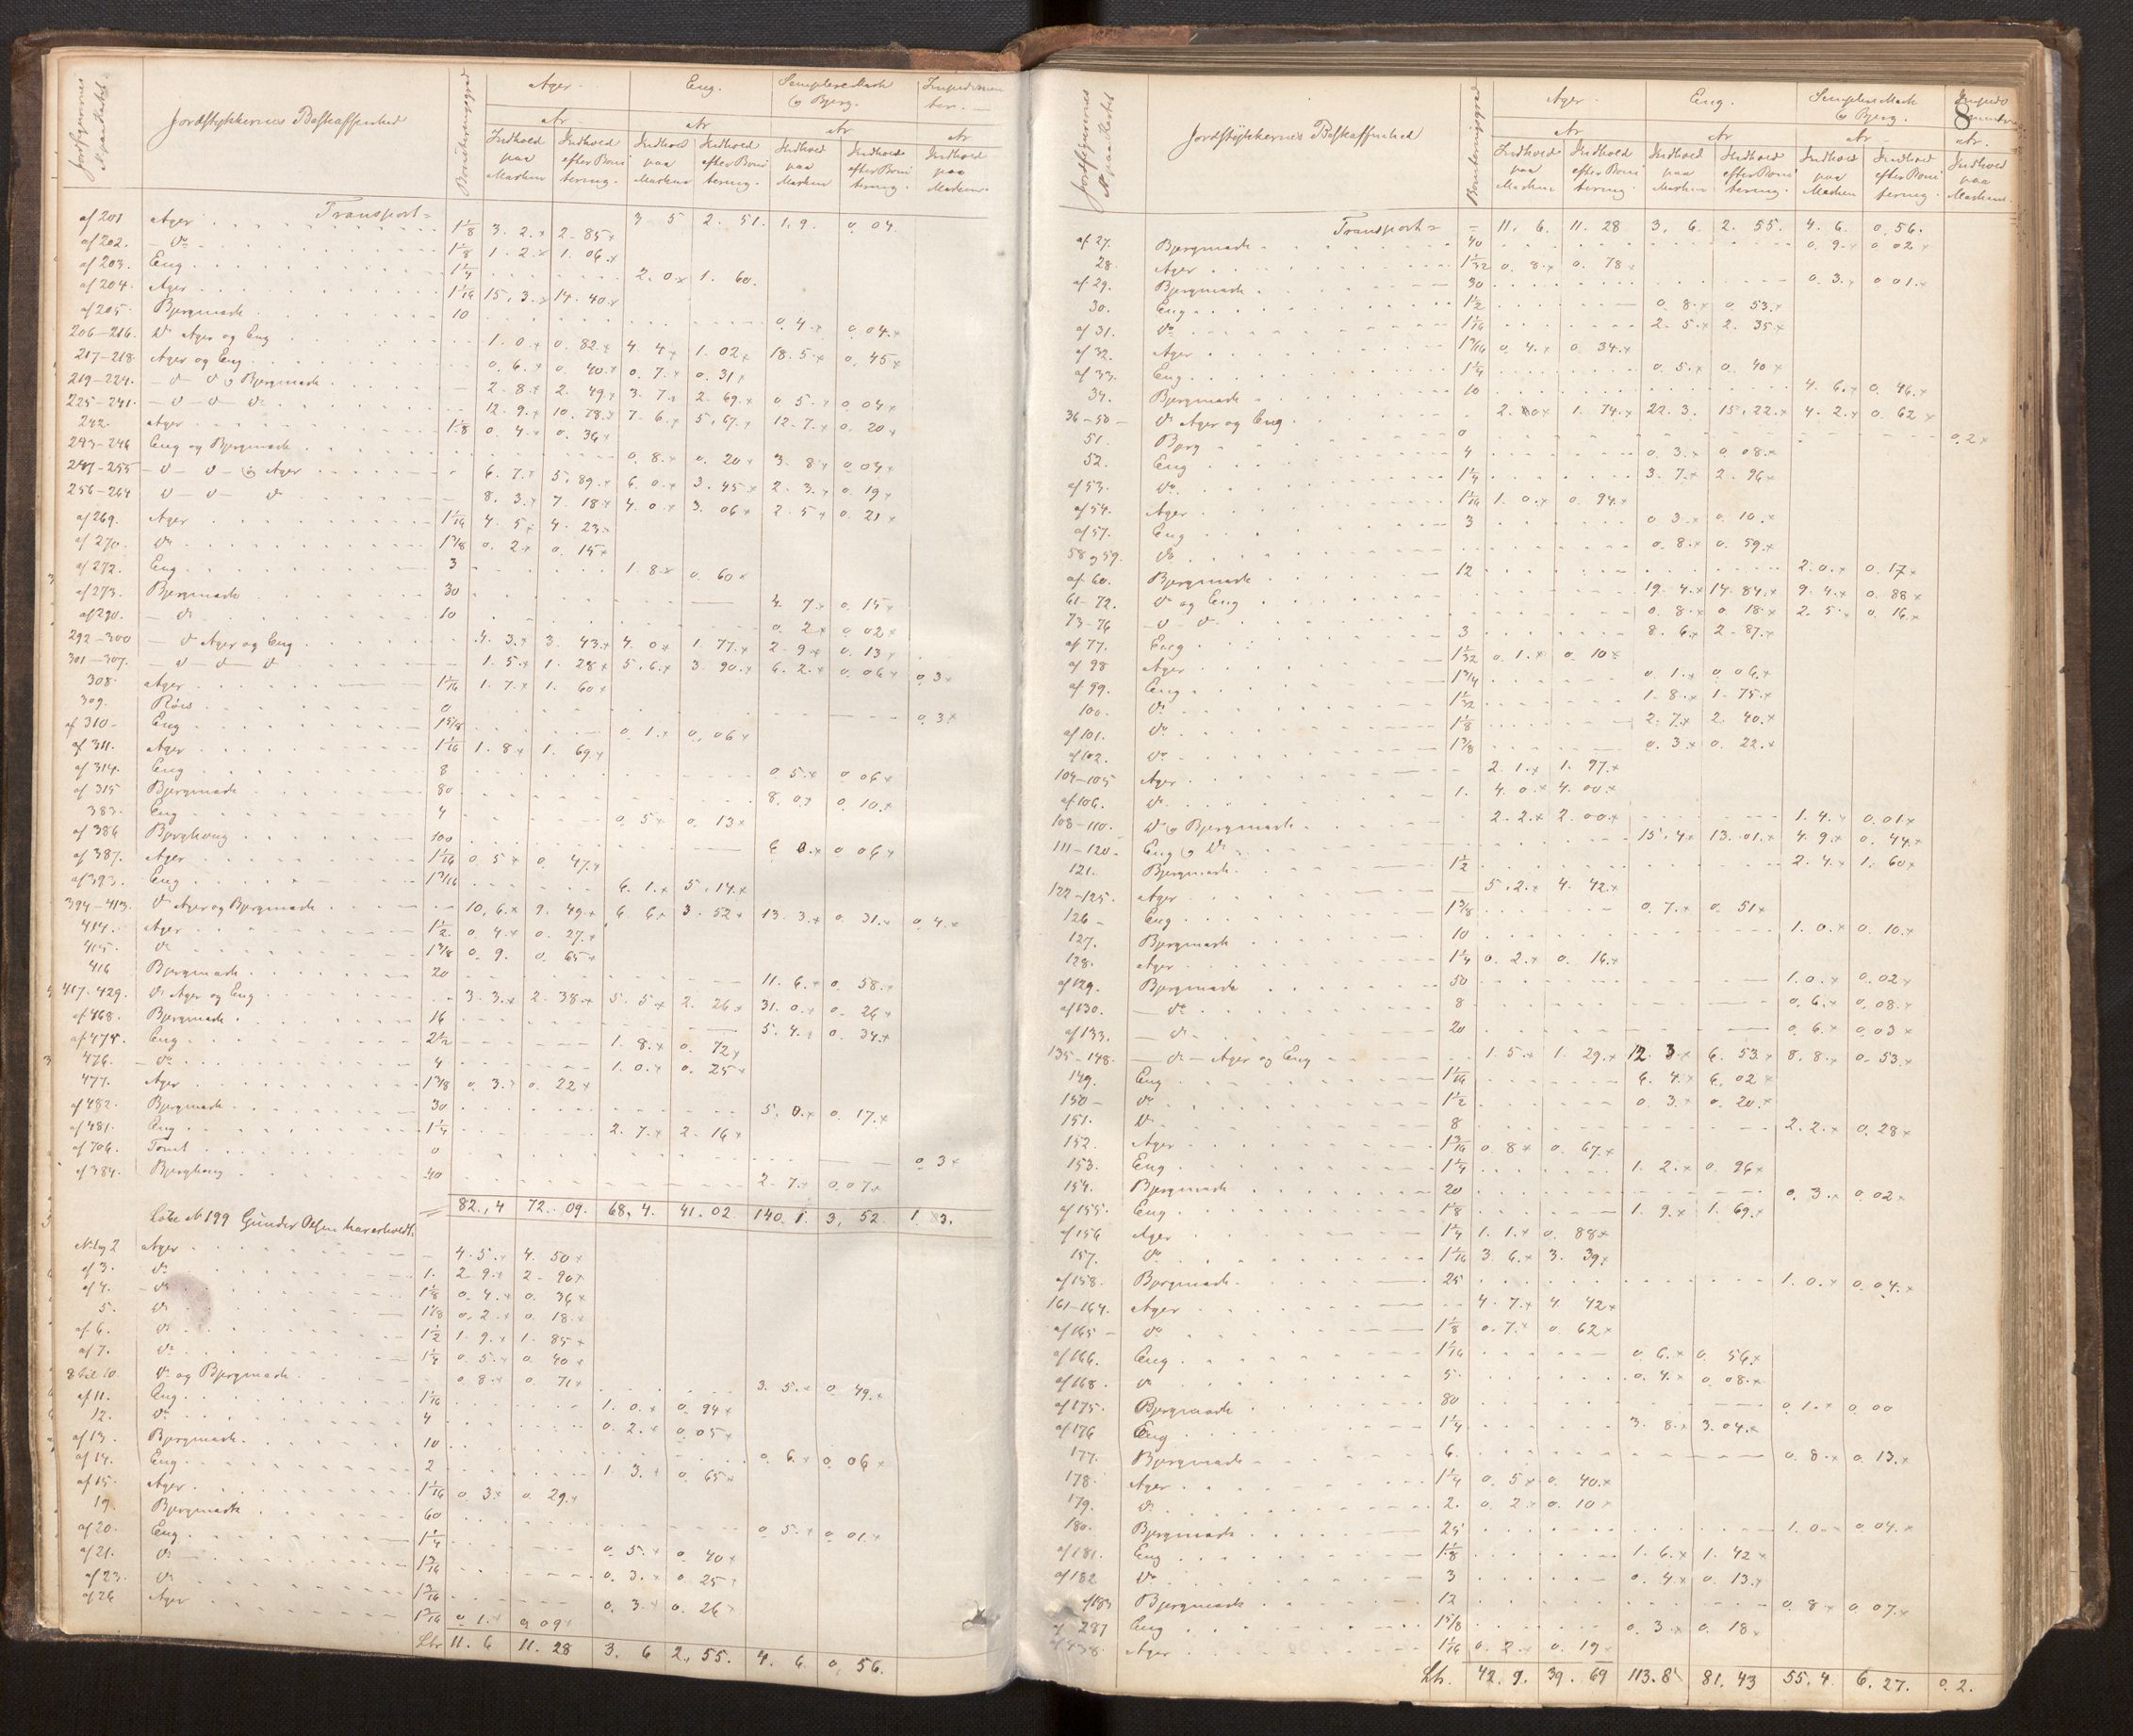 Jordstykkernes Beskaffenhed
Boniteringsgrad
Ager. Eng. Simplere Mark og Bjerg. Impedimenter.
Ar Ar Ar Ar
Indhold paa Marken Indhold efter Bonitering. Indhold paa Marken Indhold efter Bonitering. Indhold paa Marken Indhold efter Bonitering. Indhold paa Marken.
Transport = 3 5 2. 51. 1. 9. 0. 04.
af 201 Ager 1⅛ 3. 2. 2. 85
af 202. do 1⅛ 1. 2. 1. 06.
af 203. Eng 1¼ 2. 0. 1. 60.
af 204. Ager 1 1/16 15. 3. 14. 40.
af 205. Bjergmark 10 0. 4. 0. 04.
206-216. do Ager og Eng 1. 0. 0. 82. 4. 4. 1. 02. 18. 5. 0. 45
217-218 Ager og Eng 0. 6. 0. 40. 0. 7. 0. 31
219-224. - d - d og Bjergmark 2. 8. 2. 49. 3. 7. 2. 69. 0. 5. 0. 04
225-241. - d - d - do 12. 9. 10. 78. 7. 6. 5. 67. 12. 7. 0. 20
242. Ager 1⅛ 0. 4. 0. 36
243-246 Eng og Bjergmark 0. 8. 0. 20 3. 8. 0. 04
247-255 - d - d - og Ager 6. 7. 5. 89. 6. 0. 3. 45 2. 3. 0. 19
256-264 d - d - d 8. 3. 7. 18. 4. 0. 3. 06 2. 5. 0. 21
af 269. Ager 1 1/16 4. 5. 4. 23
af 270. do 1⅜ 0. 2. 0. 15
af 272. Eng 3 1. 8. 0. 60
af 273. Bjergmark 30 4. 7. 0. 15
af 290. - do 10 0. 2 0. 02
292-300 - d Ager og Eng 4. 3. 3. 43. 4. 0. 1. 77. 2. 9. 0. 13
301-307. - d - d - d 1. 5. 1. 28 5. 6. 3. 90. 6. 2. 0. 06 0. 3
308. Ager 1 1/16 1. 7. 1. 60
309. Röis 0 0. 3.
af 310 - Eng 1⅝ 0. 1. 0. 06
af 311. Ager 1 1/16 1. 8 1. 69.
af 314. Eng 8 0. 5. 0. 06
af 315 Bjergmark 80 8. 0. 0. 10.
383. Eng 4 0. 5 0. 13
af 386 Bjerghaug 100 6. 0. 0. 06
af 387. Ager 1 1/16 0. 5 0. 47.
af 393. Eng 1 3/16 6. 1. 5. 14.
394-413. do Ager og Bjergmark 10. 6. 9. 49. 6. 6. 3. 52 13. 3. 0. 31. 0. 4.
414. Ager 1½ 0. 4. 0. 27.
415. do 1⅜ 0. 9. 0. 65
416 Bjergmark 20 11. 6. 0. 58.
417-429. do Ager og Eng 3. 3. 2. 38. 5. 5. 2. 26 31. 0. 0. 26
af 468. Bjergmark 16 5. 4. 0. 34.
af 475. Eng 2½ 1. 8. 0. 72
476. - do 4 1. 0. 0. 25
477. Ager 1⅜ 0. 3. 0. 22
af 482. Bjergmark 30 5. 0. 0. 17.
af 481. Eng 1¼ 2. 7. 2. 16
af 706. Tomt 0 0. 3
af 384. Bjerghaug 40 2. 7. 0. 07.
82. 4 72. 09. 68. 4. 41. 02 140. 1. 3. 52 1. 3.
Løbe No 199 Gunder Olsen har erholdt.
No 1 og 2 Ager 4. 5. 4. 50
af 3. do 1. 2. 9. 2. 90
af 4. - do 1⅛ 0. 4. 0. 36
5. do 1⅛ 0. 2. 0. 18.
af 6. do 1. 9. 1. 85
af 7. do 1¼ 0. 5. 0. 40
8 til 10 do og Bjergmark 0. 8. 0. 71 3. 5. 0. 49.
af 11. Eng 1 1/16 1. 0. 0. 94
12. do 4 0. 2. 0. 05
af 13. Bjergmark. 10 0. 6. 0. 06
af 14. Eng 2 1. 3. 0. 65
af 15. Ager 1 1/16 0. 3 0. 29.
19. Bjergmark 60 0. 5. 0. 01.
af 20. Eng 1¼ 0. 5. 0. 40
af 21. do 1 3/16 0. 3. 0. 25
af 23. do 1 3/16 0. 3. 0. 26
af 26 Ager 1 3/16 0. 1. 0. 09
Lbr 11. 6 11. 28 3. 6 2. 55. 4. 6. 0. 56.
8
Jordstykkernes Beskaffenhed
Boniteringsgrad
Ager. Eng. Simplere Mark og Bjerg.
Ar Ar Ar Ar.
Indhold paa Marken Indhold efter Bonitering. Indhold paa Marken Indhold efter Bonitering. Indhold paa Marken Indhold efter Bonitering. Indhold paa Marken.
Transport = 11. 6. 11. 28 3. 6. 2. 55. 4. 6. 0. 56.
af 27. Bjergmark 40 0. 9. 0. 02
28. Ager 1 1/32 0. 8. 0. 78
af 29. Bjergmark 30 0. 3. 0. 01.
30. Eng 1½ 0. 8. 0. 53.
af 31. do 1 1/16 2. 5. 2. 35
af 32. Ager 1 3/16 0. 4. 0. 34.
af 33. Eng 1¼ 0. 5. 0. 40
34. Bjergmark 10 4. 6. 0. 46.
36-50 - do Ager og Eng 2. 0 1. 74. 22. 3. 15. 22. 4. 2. 0. 62
51. Bjerg 0 0. 2
52. Eng 4 0. 3. 0. 08.
af 53. do 1¼ 3. 7. 2. 96
af 54. Ager 1 1/16 1. 0. 0. 94.
af 57. Eng 3 0. 3. 0. 10.
58 og 59. do 0. 8. 0. 59.
af 60. Bjergmark 12 2. 0. 0. 17
61-72. do og Eng 19. 4. 14. 84. 9. 4. 0. 88
73-76 - d - d - 0. 8. 0. 18. 2. 5. 0. 16.
af 77. Eng 3 8. 6. 2. 87.
af 98 Ager 1 1/32 0. 1. 0. 10
af 99. Eng 1¾ 0. 1. 0. 06.
100. do 1 1/32 1. 8. 1. 75.
af 101. do 1⅛ 2. 7. 2. 40.
af 102. do 1⅜ 0. 3. 0. 22.
104-105 Ager 2. 1. 1. 97.
af 106. do 1. 4. 0. 4. 00.
108-110. do og Bjergmark 2. 2. 2. 00 1. 4. 0. 01
111-120 - Eng og do 15. 4. 13. 01. 4. 9. 0. 44.
121. Bjergmark 1½ 2. 4. 1. 60
122-125. Ager 5. 2. 4. 42.
126 - Eng 1⅜ 0. 7. 0. 51
127. Bjergmark 10 1. 0. 0. 10.
128. Ager 1¼ 0. 2. 0. 16.
af 129. Bjergmark 50 1. 0. 0. 02
af 130. - do 8 0. 6. 0. 08.
af 133. - do 20 0. 6. 0. 03
135-148. - do - Ager og Eng 1. 5. 1. 29. 12. 3 6. 53. 8. 8. 0. 53.
149. Eng 1 1/16 6. 4. 6. 02
150 - do 1½ 0. 3. 0. 20.
151. do 8 2. 2. 0. 28
152. Ager 1 3/16 0. 8 0. 67.
153. Eng 1¼ 1. 2. 0. 96
154. Bjergmark 20 0. 3. 0. 02
af 155. Eng 1⅛ 1. 9. 1. 69.
af 156 Ager 1¼ 1. 1. 0. 88
157. do 1 1/16 3. 6. 3. 39.
af 158. Bjergmark 25 1. 0. 0. 04.
161-164. Ager 4. 7. 4. 42
af 165 - do 1⅛ 0. 7. 0. 62
af 166. Eng 1 1/16 0. 6. 0. 56.
af 168. do 5. 0. 4. 0. 08.
af 175. Bjergmark 80 0. 1. 0. 00
af 176 Eng 1¼ 3. 8. 3. 04.
177. Bjergmark 6. 0. 8. 0. 13.
178. Ager 1¼ 0. 5 0. 40.
179. do 2. 0. 2. 0. 10
180. Bjergmark 25 1. 0. 0. 04.
af 181. Eng 1⅛ 1. 6. 1. 42
af 182 do 3 0. 4. 0. 13.
af 183 Bjergmark 12 0. 8. 0. 07.
af 287 Eng 1⅝ 0. 3. 0. 18.
Ager 1 1/16 0. 2. 0. 19
Lb. 42. 9. 39. 69 113. 8 81. 43 55. 4. 6. 27. 0. 2.